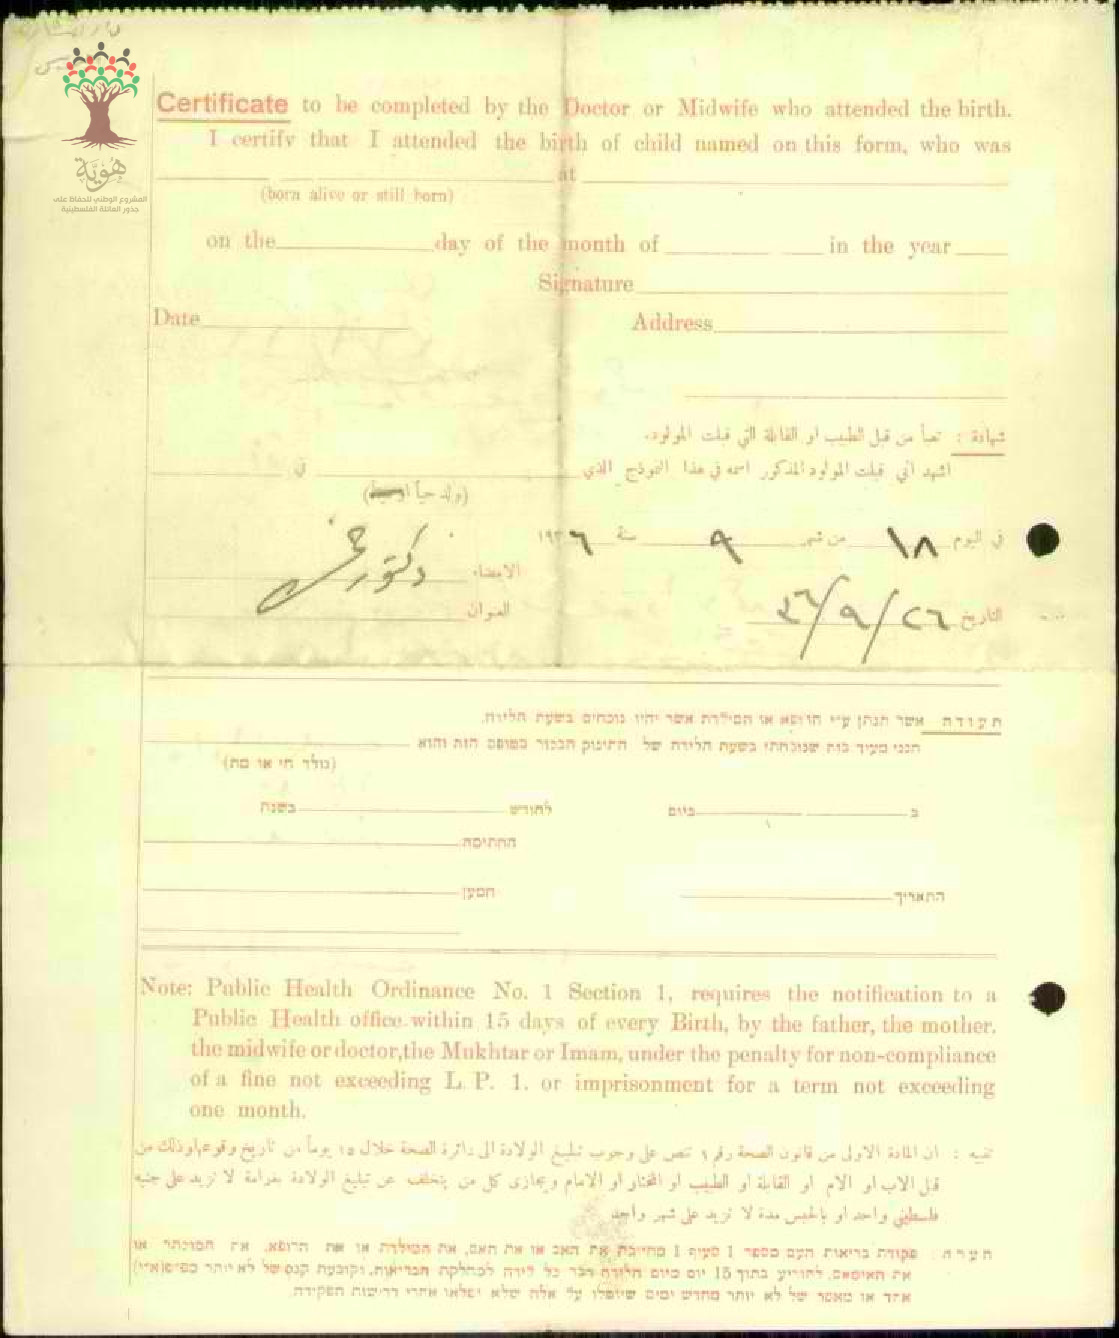 هُوِيَّة
المشروع الوطني للحفاظ على
جذور العائلة الفلسطينية
Certificate to be completed by the Doctor or Midwife who attended the birth.
I certify that I attended the birth of child named on this form, who was
at
(born alive or still born)
on the day of the month of in the year
Signature
Date Address
شهادة : تعبأ من قبل الطبيب او القابلة التي قبلت المولود.
اشهد اني قبلت المولود المذكور اسمه في هذا النموذج الذي في
(ولد حياً او
في اليوم ١٨ من شهر ٩ سنة ١٩٣٦
الامضاء دكتور
التاريخ ٢٦/٩/٣٦ العنوان
תעודה אשר תנתן ע״י הרופא או המילדת אשר יהיו נוכחים בשעת הלידה.
הנני מעיד בזה שנוכחתי בשעת הלידה של התינוק הנזכר בטופס הזה והוא
(נולד חי או מת)
ב ביום לחודש בשנת
החתימה
התאריך המען
Note: Public Health Ordinance No. 1 Section 1, requires the notification to a
Public Health office within 15 days of every Birth, by the father, the mother.
the midwife or doctor, the Mukhtar or Imam, under the penalty for non-compliance
of a fine not exceeding L. P. 1. or imprisonment for a term not exceeding
one month.
تنبيه : ان المادة الاولى من قانون الصحة رقم ١ تنص على وجوب تبليغ الولادة الى دائرة الصحة خلال ١٥ يوماً من تاريخ وقوعها وذلك من
قبل الاب او الام او القابلة او الطبيب او المختار او الامام ويجازى كل من يتخلف عن تبليغ الولادة بغرامة لا تزيد على جنيه
فلسطيني واحد او بالحبس مدة لا تزيد على شهر واحد
הערה : פקודת בריאות העם מספר 1 סעיף 1 מחייבת את האב או את האם, את המילדת או את הרופא, את המוכתר או
את האימאם, להודיע בתוך 15 יום מיום הלידה דבר כל לידה למחלקת הבריאות, וקובעת קנס של לא יותר
אחד או מאסר של לא יותר מחדש ימים שיוטלו על אלה שלא ימלאו אחרי דרישות הפקודה.